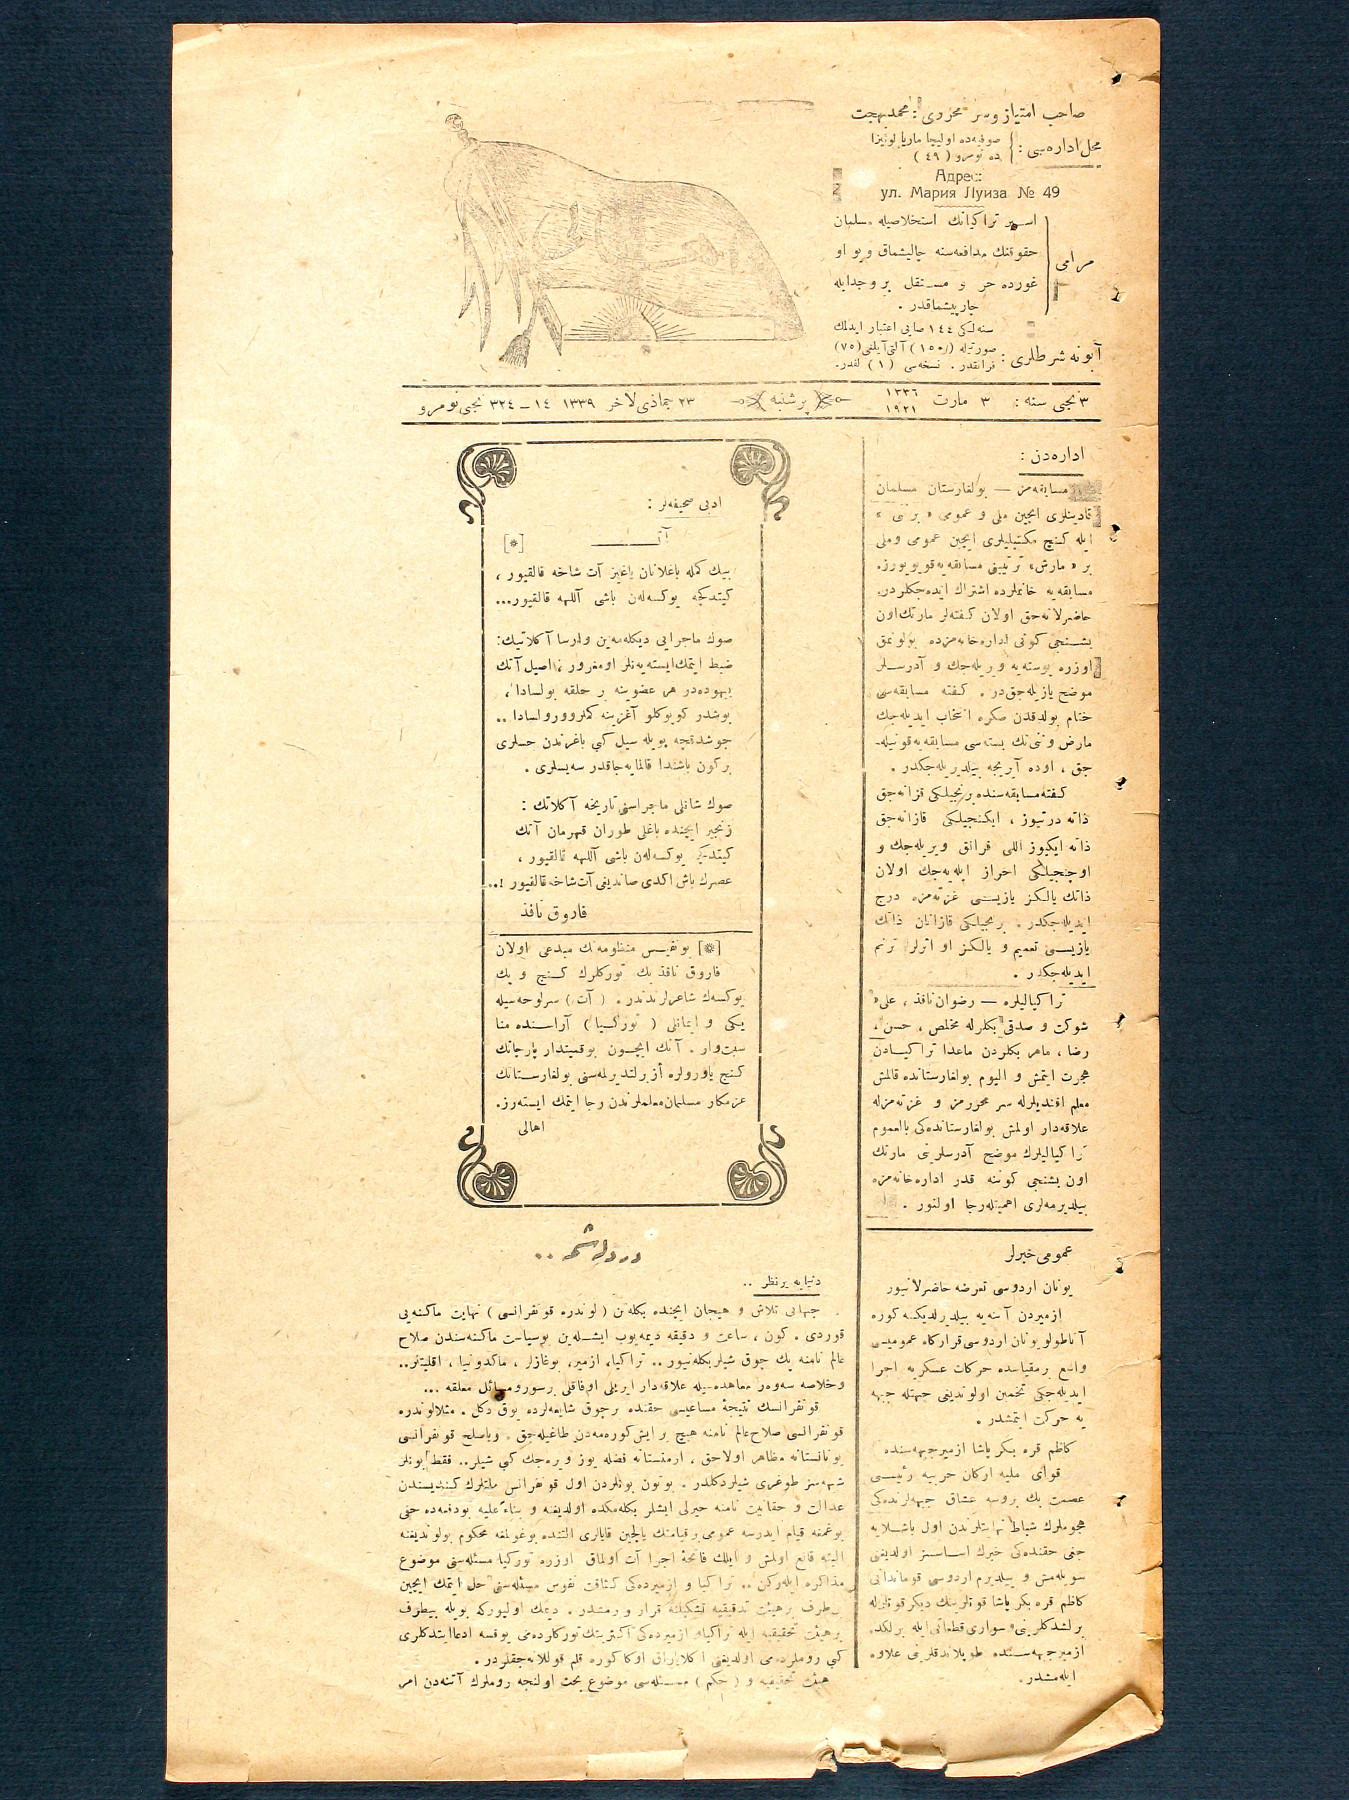 صاحب امتیاز و سر محرری : محمد بهجت
محل اداره‌سی :
صوفیه‌ده اولیچا ماریا لوئیزا
ده نومرو ( ٤٩ )
Адрес:
ул. Мария Луиза № 49
مرامی
اسیر تراکیانك استخلاصیله مسلمان
حقوقنك مدافعه‌سنه چالیشماق و بو او
غورده حر و مستقل بر وجدایله
چارپیشماقدر .
آبونه شرطلری :
سنه‌لکی ١٤٤ صایی اعتبار ایدلمك
صورتیله (١٥٠) آلتی آیلغی (٧٥)
فرانقدر . نسخه‌سی ( ١ ) لفدر.
٣ نجی سنه : ٣ مارت ١٣٣٦ ١٩٢١ پرشنبه ٢٣ جماذی لاخر ١٣٣٩ ١٤ – ٣٢٤ نجی نومرو
اداره‌دن :
مسابقه‌مز — بولغارستان مسلمان
قادینلری ایچین ملی و عمومی « بر ننی »
ایله کنج مکتبلیلری ایچین عمومی وملی
بر « مارش » ترتیبنی مسابقه‌یه قویویورز.
مسابقه‌یه خانملرده اشتراك ایده‌جکلردر.
حاضرلانه‌جق اولان کفته‌لر مارتك اون
بشنجی کونی اداره‌خانه‌مزده بولونمق
اوزره پوسته‌یه ویریله‌جك و آدرسلر
موضح یازیله‌جق‌در . کفته مسابقه‌سی
ختام بولدقدن صکره انتخاب ایدیله‌جك
مارش وننی‌نك بسته‌سی مسابقه‌یه قونیله‌-
جق ، اوده آیریجه بیلدیریله‌جکدر .
کفته مسابقه‌سنده برنجیلکی قزانه‌جق
ذاته درتیوز ، ایکنجیلکی قازانه‌جق
ذاته ایکیوز اللی فرانق ویریله‌جك و
اوچنجیلکی احراز ایله‌یه‌جك اولان
ذاتك یالکز یازیسی غزته‌مزه درج
ایدیله‌جکدر . برنجیلکی قازانان ذاتك
یازیسی تعمیم و یالکز او اثرلر ترنم
ایدیله‌جکدر .
تراکیالیلره — رضوان نافذ ، علی
شوکت و صدقی بکلرله مخلص ، حسن ،
رضا ، ماهر بکلردن ماعدا تراکیادن
هجرت ایتمش و الیوم بولغارستانده قالمش
معلم افندیلرله سر محررمز و غزته‌مزله
علاقه‌دار اولمش بولغارستانده‌کی بالعموم
تراکیالیلرك موضح آدرسلرینی مارتك
اون بشنجی کوننه قدر اداره‌خانه‌مزه
بیلدیرمه‌لری اهمیتله رجا اولنور .
عمومی خبرلر
یونان اردوسی تعرضه حاضرلانیور
ازمیردن آتنه‌یه بیلدیرلدیکنه کوره
آناطولو یونان اردوسی قرارکاه عمومیسی
واسع بر مقیاسده حرکات عسکریه اجرا
ایدیله‌جکی تخمین اولوندیغی جهتله جبهه
یه حرکت ایتمشدر .
کاظم قره بکر پاشا ازمیر جبهه‌سنده
قوای ملیه ارکان حربیه رئیسی
عصمت بك بروسه عشاق جبهه‌لرنده‌کی
هجوملرك شباط نهایتلرندن اول باشلایه
جغی حقنده‌کی خبرك اساسسز اولدیغنی
سویله‌مش و ییلدیرم اردوسی قوماندانی
کاظم قره بکر پاشا قوتلرینك دیکر قوتلرله
برلشدکلرینی و سواری قطعاتی ایله برلکده
ازمیر جبهه‌سنده طوپلاندقلرینی علاوه
ایله‌مشدر.
ادبی صحیفه‌لر :
آت [*]
بیك کمله باغلانان یاغیز آت شاخه قالقیور ،
کیتدکجه یوکسه‌لن باشی آللهه قالقیور...
صوك ماجرایی دیکله‌مه‌ین وارسا آکلاتیك:
ضبط ایتمك ایسته‌یه‌نلر او مغرور ، اصیل آتك
بیهوده‌در هر عضوینه بر حلقه بولسادا ،
بوشدر کوپوکلو آغزینه کملر وورولسادا ..
جوشدقجه بویله سیل کبی باغرندن حسلری
برکون باشندا قالمایه‌جاقدر سه‌یسلری .
صوك شانلی ماجراسنی تاریخه آکلاتك :
زنجیر ایچنده باغلی طوران قهرمان آتك
کیتدکجه یوکسه‌لن باشی آللهه قالقیور ،
عصرك باش اکدی صاندیغی آت شاخه قالقیور !..
فاروق نافذ
[*] بو نفیس منظومه‌نك مبدعی اولان
فاروق نافذ بك تورکلرك کنج و پك
یوکسك شاعرلرندندر . ( آت ) سرلوحه‌سیله
یکی و ایمانلی ( تورکیا ) آراسنده منا
سبت وار . آنك ایچون بو قیمتدار پارچانك
کنج یاورولره أزبرلتدیرلمه‌سنی بولغارستانك
عزمکار مسلمان معلملرندن رجا ایتمك ایسته‌رز.
اهالی
دردلشمه ..
دنیایه بر نظر ..
جهانی تلاش و هیجان ایچنده بکله‌تن ( لوندره قونفرانسی ) نهایت ماکنه‌یی
قوردی . کون ، ساعت و دقیقه دیمه‌یوب ایشله‌ین بو سیاست ماکنه‌سندن صلاح
عالم نامنه پك چوق شیلر بکله‌نیور .. تراکیا، ازمیر، بوغازلر ، ماکدونیا ، اقلیتلر..
وخلاصه سه‌وه‌ر معاهده‌سیله علاقه‌دار ایریلی اوفاقلی برسورو مسائل معلقه ...
قونفرانسك نتیجهٔ مساعیسی حقنده برچوق شایعه‌لرده یوق دکل . مثلا لوندره
قونفرانسی صلاح عالم نامنه هیچ بر ایش کوره‌مه‌دن طاغیله‌جق . ویا صلح قونفرانسی
یونانستانه مظاهر اولاجق ، ارمنستانه فضله یوز ویره‌جك کبی شیلر.. فقط بونلر
شبهه‌سز طوغری شیلر دکلدر . بوتون بونلردن اول قونفرانس ملتلرك کندیسندن
عدالت و حقانیت نامنه خیرلی ایشلر بکله‌مکده اولدیغنه و بناءً علیه بودفعه‌ده حقی
بوغمغه قیام ایدرسه عمومی بر قیامتك یالچین قایالری آلتنده بوغولمغه محکوم بولوندیغنه
البته قانع اولمش و ایلك فاتحهٔ اجرا آت اولماق اوزره تورکیا مسئله‌سنی موضوع
مذاکره ایله‌رکن .. تراکیا و ازمیرده‌کی کثافت نفوس مسئله‌سنی حل ایتمك ایچین
بیطرف بر هیئت تدقیقیه تشکیلنه قرار ویرمشدر . دیمك اولیورکه بویله بیطرف
بر هیئت تحقیقیه ایله تراکیا و ازمیرده‌کی اکثریتك تورکلرده‌می یوقسه ادعا ایتدکلری
کبی روملرده‌می اولدیغنی آکلایاراق اوکا کوره قلم قوللانه‌جقلردر .
هیئت تحقیقیه و ( حکم ) مسئله‌سی موضوع بحث اولنجه روملرك آتنه‌دن امر